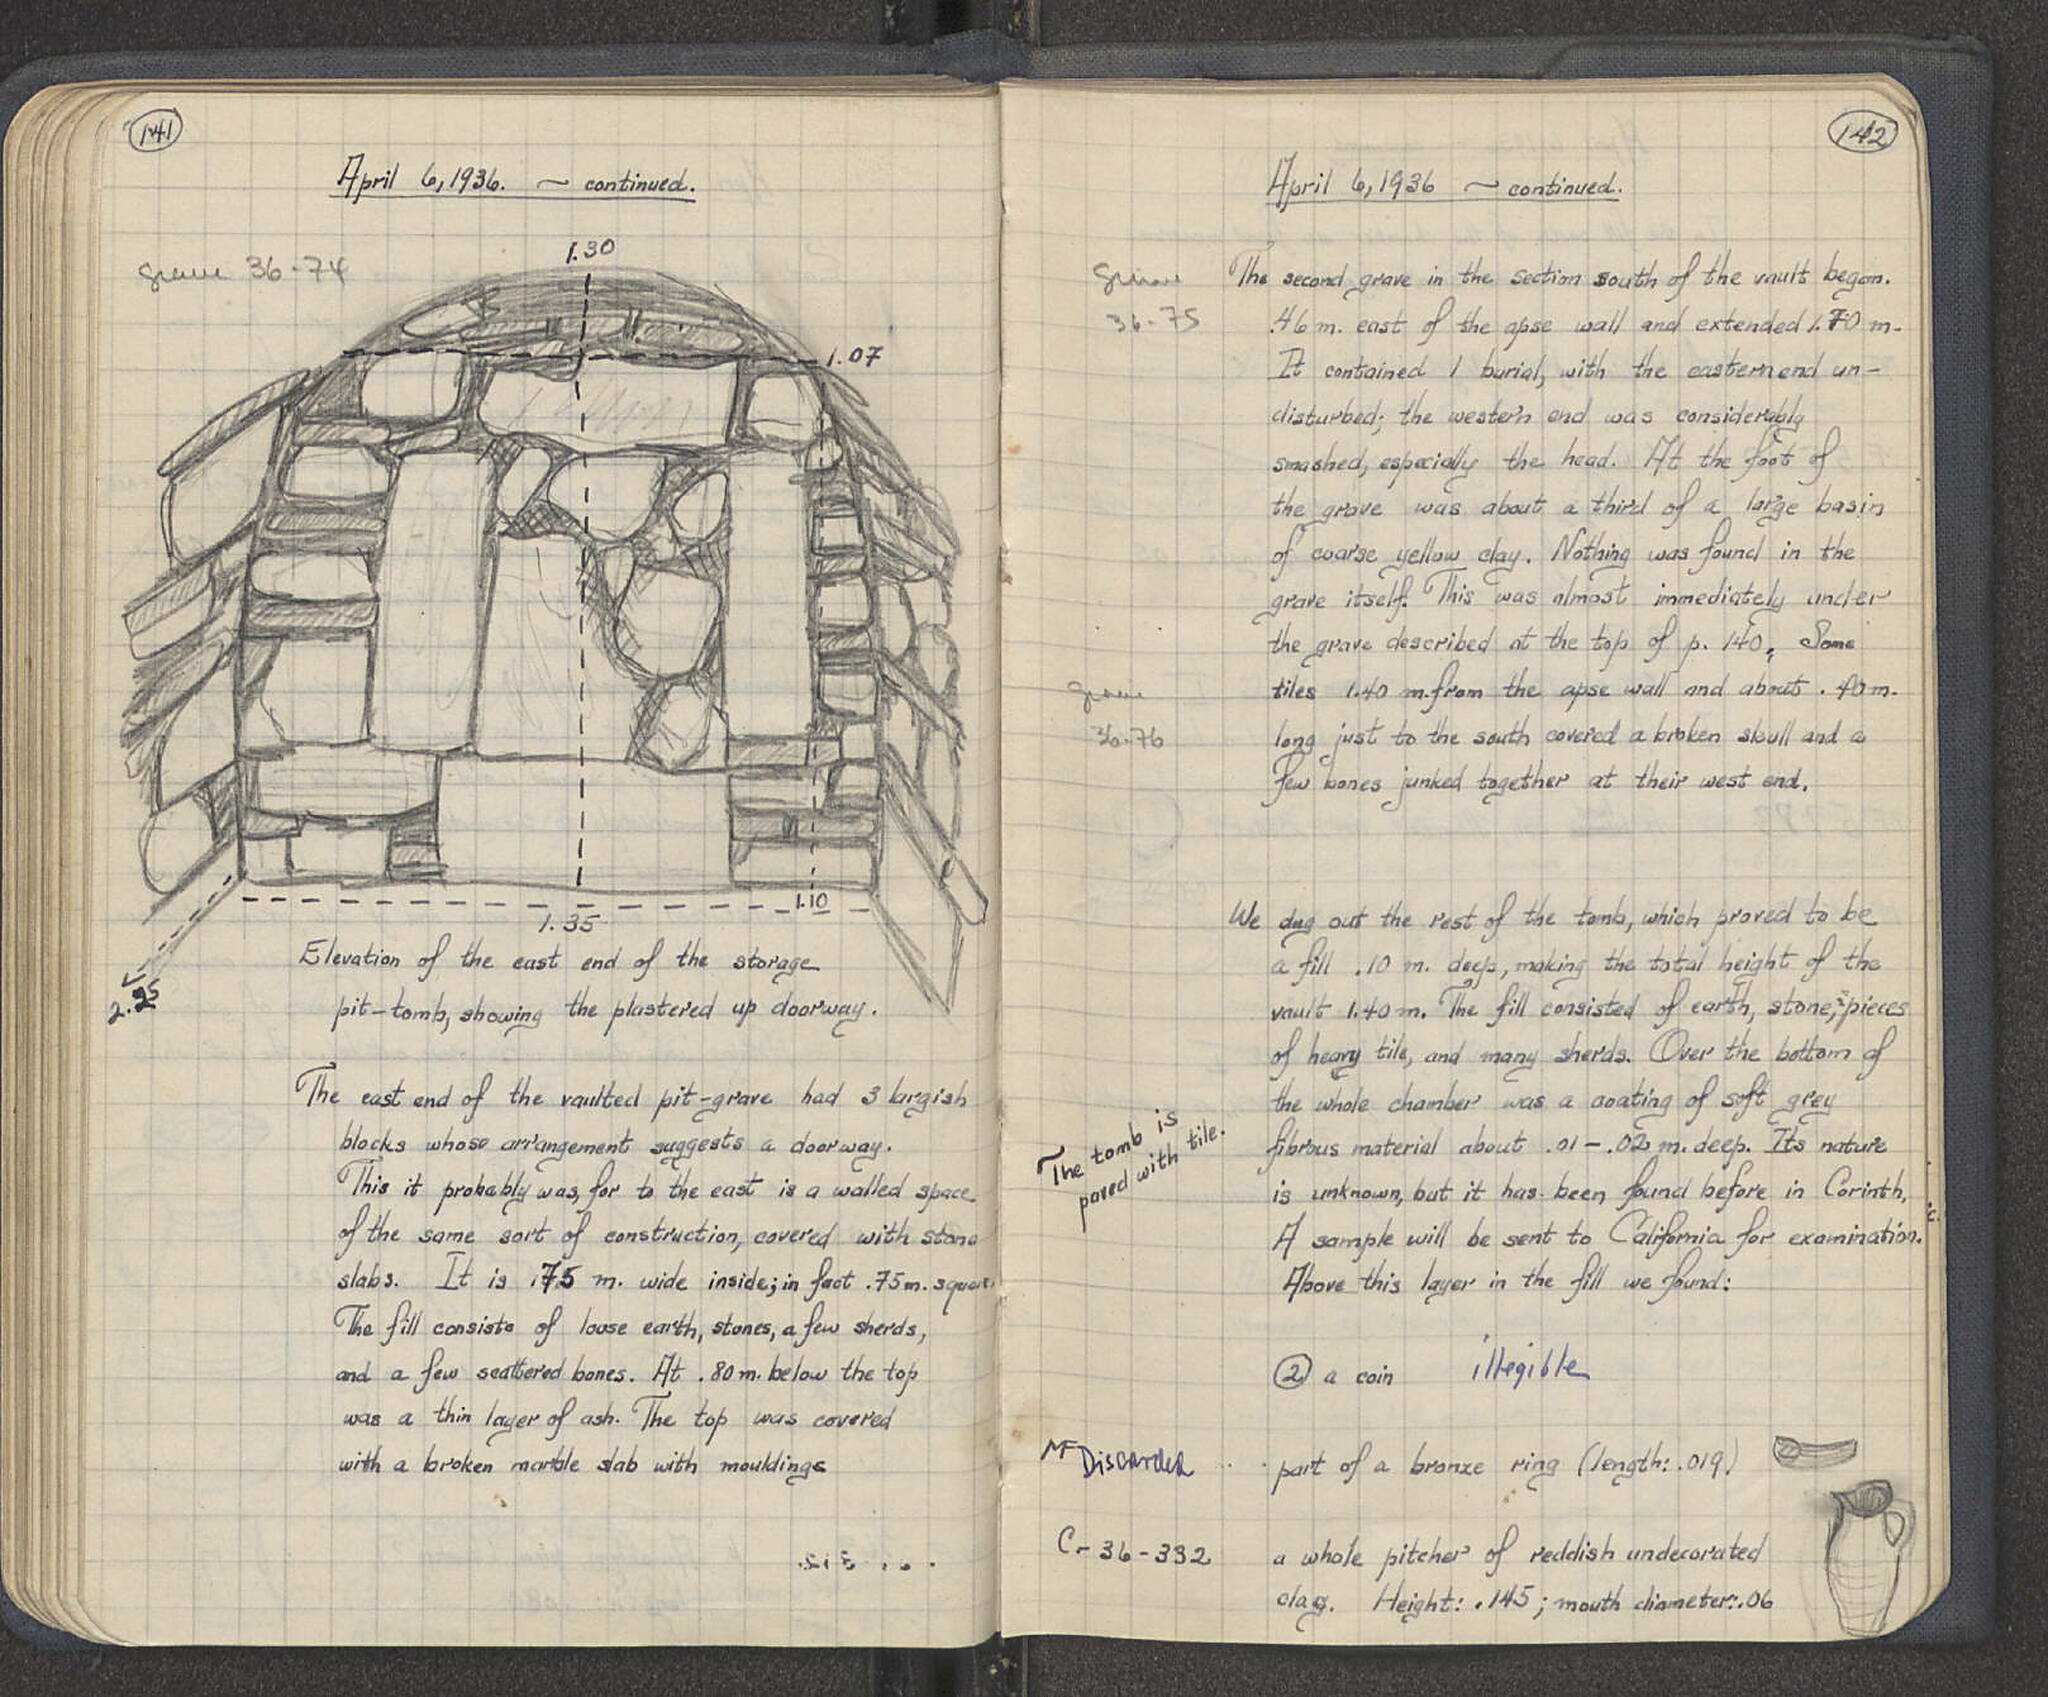 141
April 6, 1936. ~ continued.
grave 36-74
1.30
1.07
1.10
1.35
2.25
Elevation of the east end of the storage
pit-tomb, showing the plastered up doorway.
The east end of the vaulted pit-grave had 3 largish
blocks whose arrangement suggests a doorway.
This it probably was, for to the east is a walled space
of the same sort of construction, covered with stone
slabs. It is .75 m. wide inside; in fact .75 m. square.
The fill consists of loose earth, stones, a few sherds,
and a few scattered bones. At .80 m. below the top
was a thin layer of ash. The top was covered
with a broken marble slab with mouldings
142
April 6, 1936 ~ continued.
grave
36-75
The second grave in the section south of the vault began
.46 m. east of the apse wall and extended 1.70 m.
It contained 1 burial, with the eastern end un-
disturbed; the western end was considerably
smashed, especially the head. At the foot of
the grave was about a third of a large basin
of coarse yellow clay. Nothing was found in the
grave itself. This was almost immediately under
the grave described at the top of p. 140. Some
grave
36-76
tiles 1.40 m. from the apse wall and about .40 m.
long just to the south covered a broken skull and a
few bones junked together at their west end.
We dug out the rest of the tomb, which proved to be
a fill .10 m. deep, making the total height of the
vault 1.40 m. The fill consisted of earth, stone, pieces
of heavy tile, and many sherds. Over the bottom of
the whole chamber was a coating of soft grey
The tomb is
paved with tile.
fibrous material about .01 - .02 m. deep. Its nature
is unknown, but it has been found before in Corinth.
A sample will be sent to California for examination.
Above this layer in the fill we found:
2 a coin illegible
MF Discarded part of a bronze ring (length: .019)
C-36-332 a whole pitcher of reddish undecorated
clay. Height: .145; mouth diameter: .06